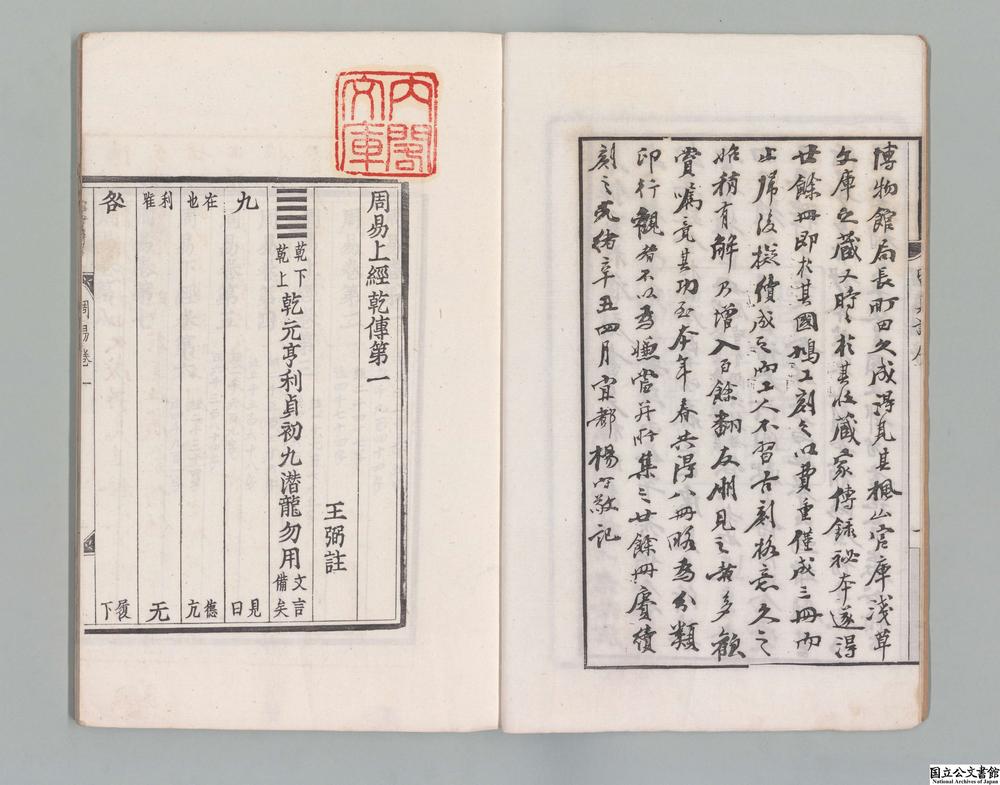 博物館局長町田久成得見其楓山官庫淺草
文庫之藏又時〻於其收藏家傳錄秘本遂得
廿餘冊即於其國鳩工刻之以費重僅成三冊而
止歸後擬續成之而工人不習古刻格意久之
始稍有解乃增入百餘翻友朋見之者多歡
賞囑竟其功至本年春共得八冊略為分類
印行觀者不以為嫌當并所集之廿餘冊賡續
刻之光緒辛丑四月宜都楊守敬記
內閣文庫
周易上經乾傳第一
王弼註
乾下乾上 乾元亨利貞初九潛龍勿用 文言備矣
九 見曰
在也 德亢
利雖 无
咎 履下
周易卷一
国立公文書館
National Archives of Japan